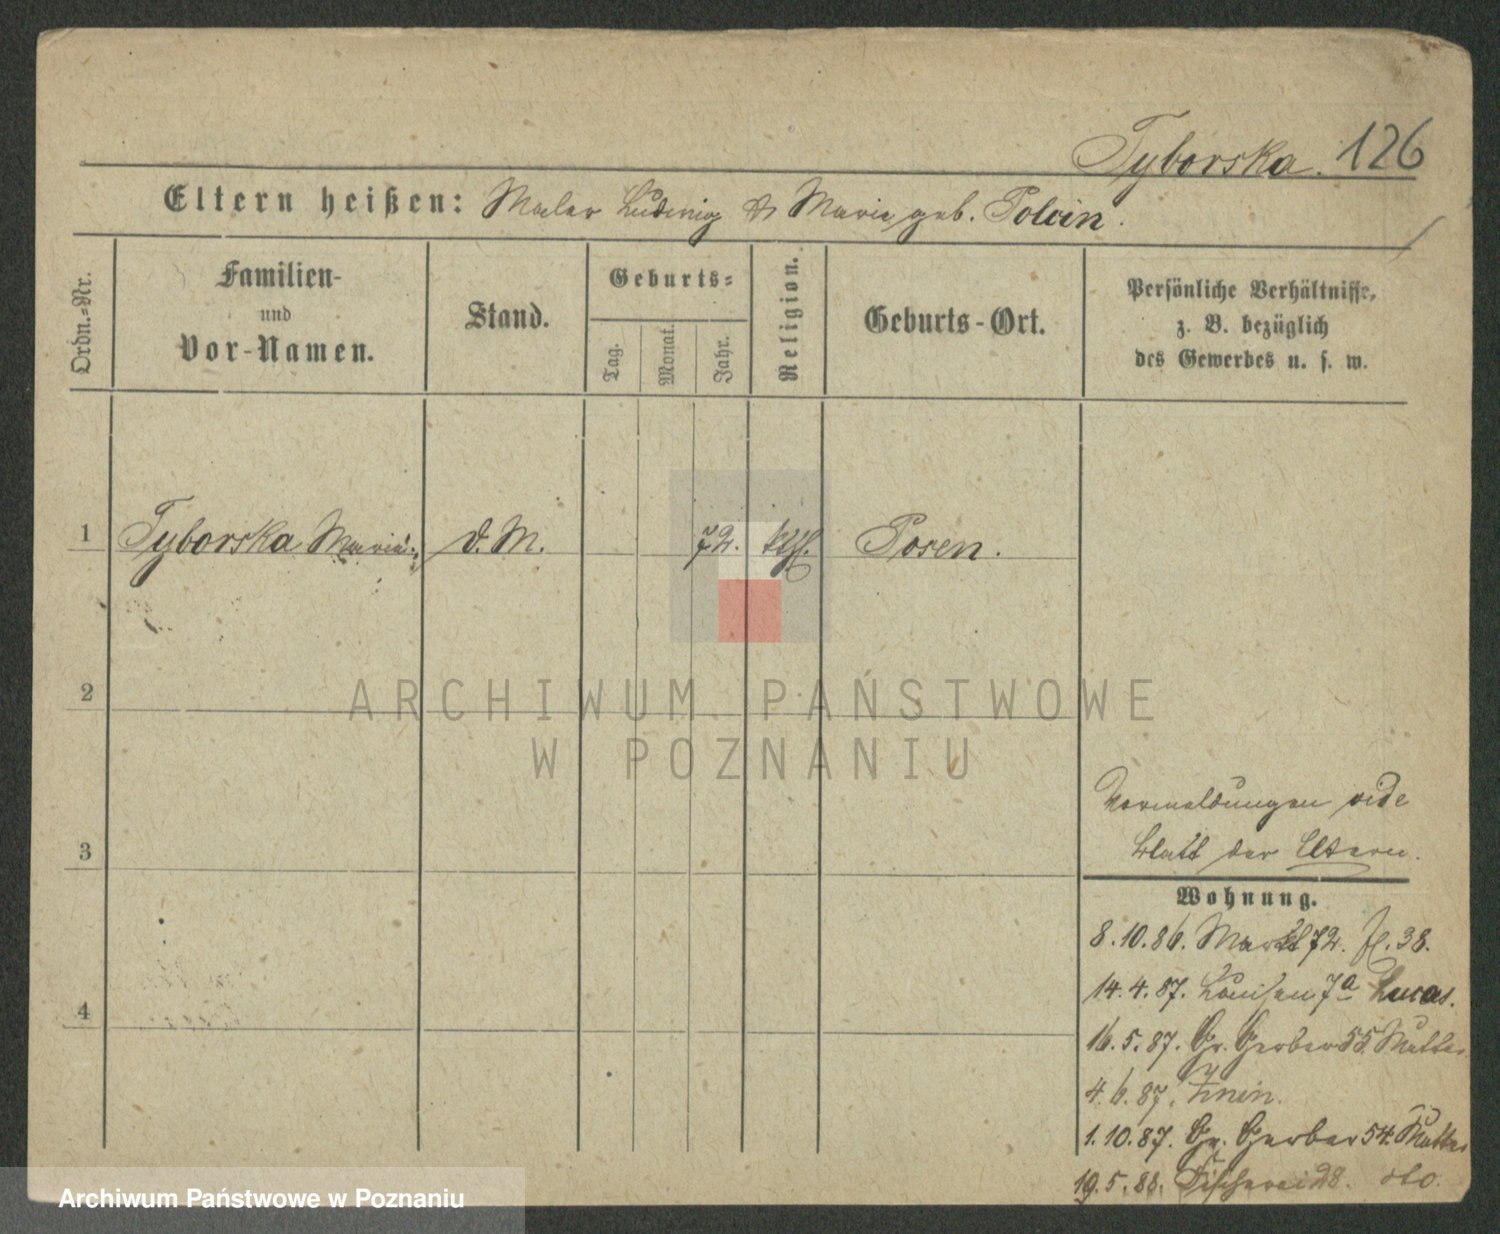 Tyborska. 126
Eltern heißen: Maler Ludwig & Marie geb. Polcin.
Ordn.-Nr.
Familien-
und
Vor-Namen.
Stand.
Geburts-
Tag.
Monat.
Jahr.
Religion.
Geburts-Ort.
Persönliche Verhältnisse,
z. B. bezüglich
des Gewerbes u. s. w.
1 Tyborska Maria d. M. 72. kth. Posen.
2
3
4
Vermeldungen vide
Blatt der Eltern.
Wohnung.
8.10.86. Markt 72. fl. 38.
14.4.87. Louisen 7a Lucas.
16.5.87. Gr. Gerber 55 Mutter
4.6.87. Znin.
1.10.87. Gr. Gerber 54. Mutter
19.5.88. Fischerei 28. dto.
ARCHIWUM PAŃSTWOWE
W POZNANIU
Archiwum Państwowe w Poznaniu